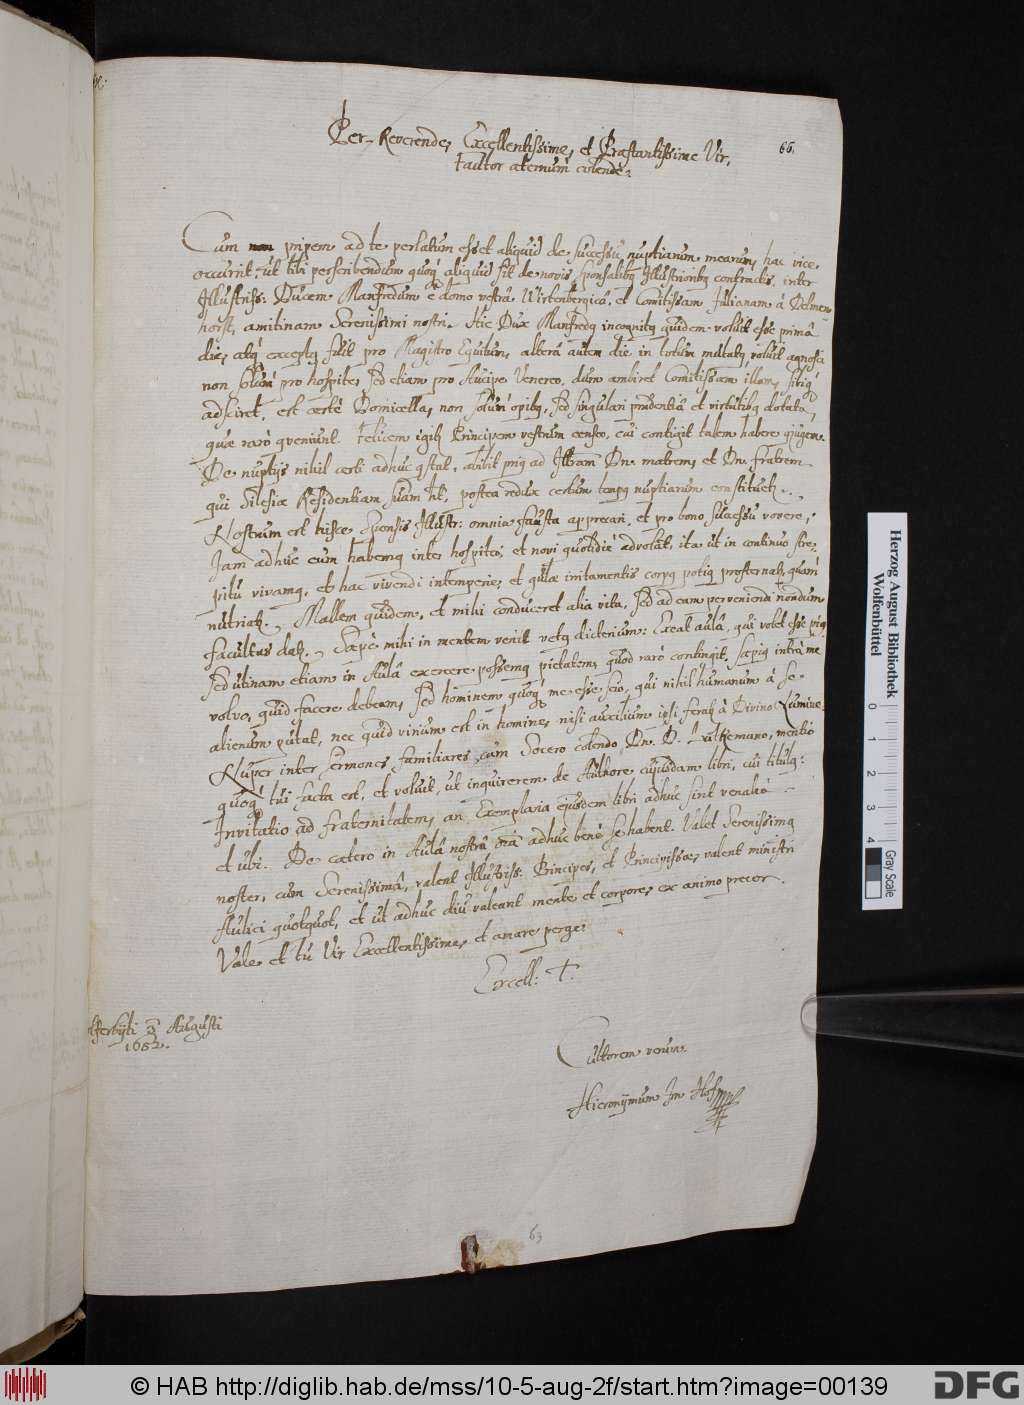 66.
Per-Reverende, Excellentissime, et Præstantissime Vir,
Fautor æternùm colende.
Cum pridem ad te perlatum esset aliquid de successu nuptiarum mearum, hac vice,
occurrit, ut tibi perscribendum quoq aliquid sit de novis sponsalibq Illustrioribq contractis, inter
Illustriss: Ducem Manfredum è domo vestrâ Wirtenbergicâ, et Comitissam Julianam à Delmen-
horst, amitinam Serenissimi nostri. Hic Dux Manfredq incognitq quidem voluit esse primâ
die, atq exceptq fuit pro Magistro Equitum, alterâ autem die in totum mutatq, voluit agnosci
non solùm pro hospite, sed etiam pro Aucipe Venereo, dum ambiret Comitissam illam, sibiq
adsciret, est certè Domicella, non solùm opibq, sed singulari prudentiâ et virtutibq dotata,
quæ rarò qveniunt. Felicem igitr Principem vestrum censeo, cui contigit talem habere qjugem.
De nuptijs nihil certi adhuc qstat, abibit priq ad Illram Dn. matrem, et Dn. fratrem
qui Silesiæ Residentiam suam ht, postea redux certum tempq nuptiarum constituet.
Nostrum est hisce Sponsis Illustr: omnia fausta apprecari, et pro bono successu vovere,
Jam adhuc eum habemq inter hospites, et novi quotidiè advolât, ita ut in continuo stre-
pitu vivamq, et hac vivendi intemperie, et gulæ irritamentis corpq potiq prosternatr, quàm
nutriatr. Mallem quidem, et mihi conduceret alia vita, sed ad eam perveniendi nondum
facultas datr. Sæpè mihi in mentem venit vetq dicterium: Exeat aulâ, qui volet esse piq
sed utinam etiam in Aulâ exercere possemq pietatem, quod rarò contingit. Sæpiq intrà me
volvo, quid facere debeam, sed hominem quoq me esse scio, qui nihil humanum à se
alienum putat, nec quid virium est in homine, nisi auxilium ipsi feratr à Divino Numine.
Nuper inter sermones familiares, cum Socero colendo, Dn. D. Lutkemano, mentio
quoq tui facta est, et voluit, ut inquirerem de Authore cujusdam libri, cui titulq:
Invitatio ad fraternitatem, an Exemplaria ejusdem libri adhuc sint venalia
et ubi. De cætero in Aulâ nostrâ oîa adhuc benè se habent. Valet Serenissimq
noster, cum Serenissimâ, valent Illustriss: Principes, et Principissæ, valent ministri
Aulici quotquot, et ut adhuc diu valeant mente et corpore, ex animo precor.
Vale et tu Vir Excellentissime, et amare perge.
Excell: T.
Augusti
1652.
Cultorem verum.
Hieronÿmum Im Hof
63
Herzog August Bibliothek
Wolfenbüttel
0 1 2 3 4
Gray Scale
© HAB http://diglib.hab.de/mss/10-5-aug-2f/start.htm?image=00139
DFG